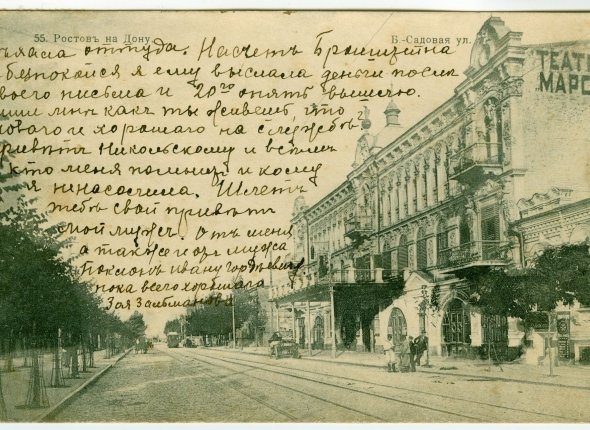 55. Ростовъ на Дону.
Б.-Садовая ул.
ТЕАТ
МАРС
оттуда. Насчетъ Бронштейна
я ему выслала деньги после
твоего письма и 20го опять вышлю.
пиши мнѣ какъ ты живешь, что
новаго и хорошаго на службѣ?
Приветъ Никольскому и всѣмъ
кто меня помнитъ и кому
я
Шлетъ
тебѣ свой приветъ
мой мужъ. Отъ меня
а также и отъ мужа
Поклонъ ивану
пока всего хорошаго
Зоя